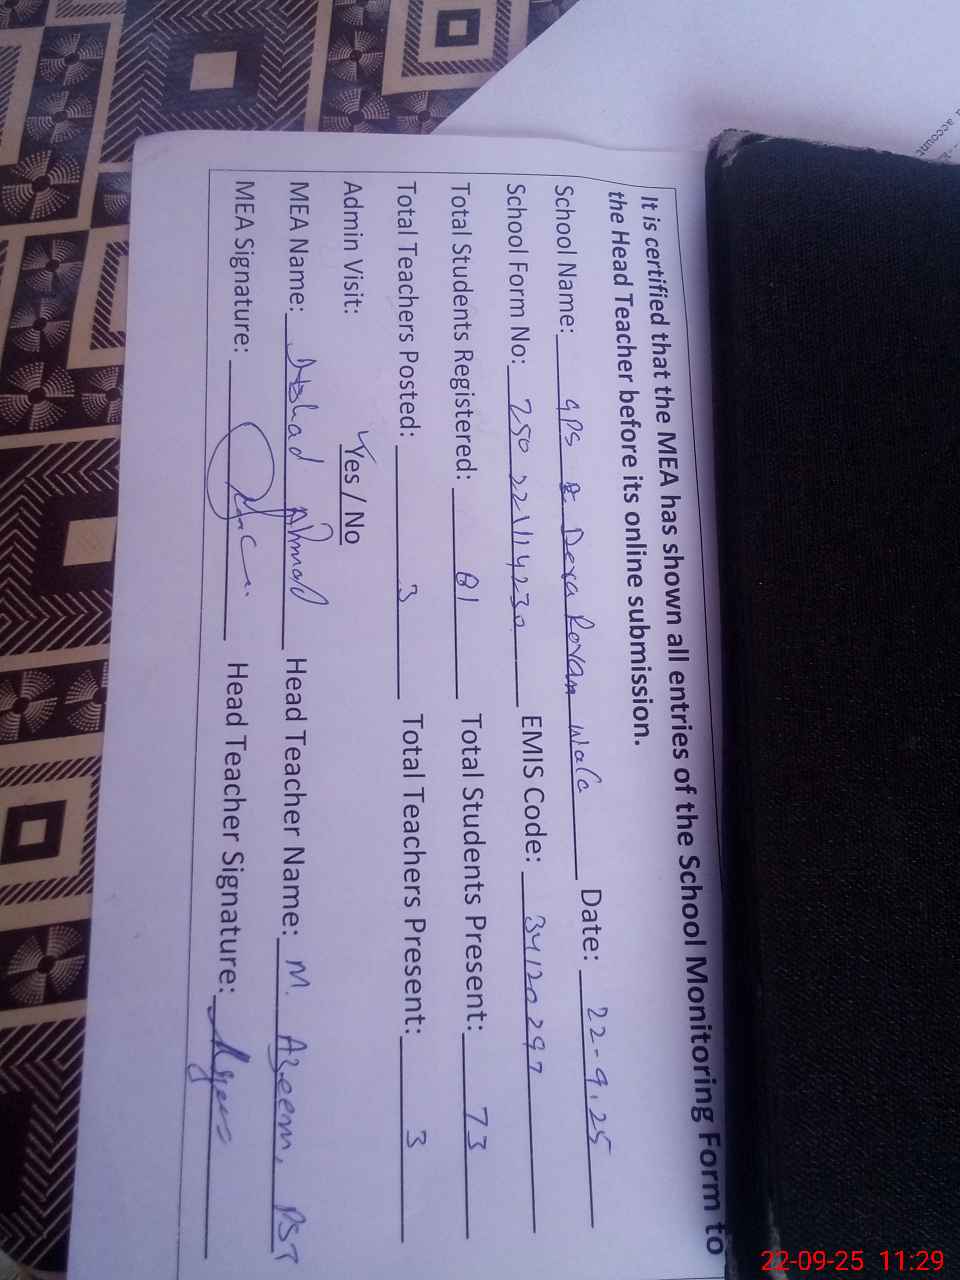 It is certified that the MEA has shown all entries of the School Monitoring Form to
the Head Teacher before its online submission.
School Name: GPS Dera Rovan wala Date: 22-9.25
School Form No: 250 221114230 EMIS Code: 34120297
Total Students Registered: 81 Total Students Present: 73
Total Teachers Posted: 3 Total Teachers Present: 3
Admin Visit: Yes / No
MEA Name: Ahmad Head Teacher Name: M. Azeem, PST
MEA Signature: Head Teacher Signature:
account
22-09-25 11:29